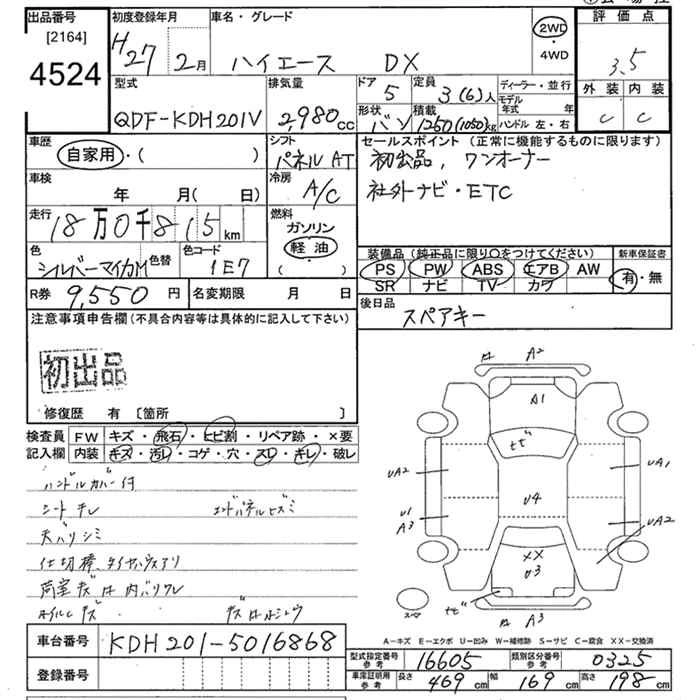 出品番号
[2164]
4524
初度登録年月
H27 2月
車名・グレード
ハイエース DX
2WD
・
4WD
評価点
3.5
外装 内装
C C
型式
QDF-KDH201V
排気量
2,980 cc
ドア
5
形状
バン
定員
3(6)人
積載
1250(1050)kg
ディーラー・並行
モデル年式 年
ハンドル 左・右
車歴
自家用・( )
車検
年 月( 日)
走行
18万0千815km
色
シルバーマイカM
色替
色コード
1E7
シフト
パネルAT
冷房
A/C
燃料
ガソリン
軽油
( )
セールスポイント(正常に機能するものに限ります)
初出品, ワンオーナー
社外ナビ・ETC
装備品(純正品に限り〇をつけてください)
PS PW ABS エアB AW
SR ナビ TV カワ
新車保証書
有・無
R券 9,550円
名変期限 月 日
後日品
スペアキー
注意事項申告欄(不具合内容等は具体的に記入して下さい)
初出品
修復歴 有 [箇所 ]
検査員
記入欄
FW キズ・飛石・ヒビ割・リペア跡・×要
内装 キズ・汚レ・コゲ・穴・スレ・キレ・破レ
ハンドルカバー付
シートキレ
天バリシミ
A2
A1
UA2
UA1
U4
U1
A3
UA2
XX
U3
A3
車台番号 KDH201-5016868
登録番号
A-キズ E-エクボ U-凹み W-補修跡 S-サビ C-腐食 XX-交換済
型式指定番号
参考
16605
類別区分番号
参考
0325
車庫証明用
参考
長さ 469cm 幅 169cm 高さ 198cm